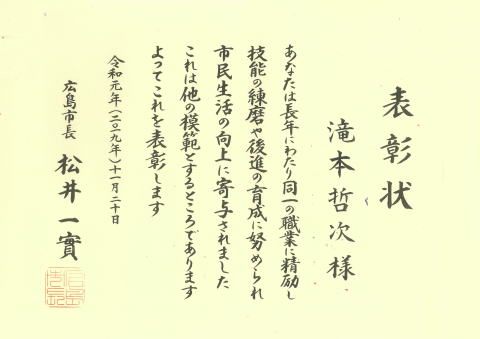 表彰状
滝本哲次様
あなたは長年にわたり同一の職業に精励し
技能の練磨や後進の育成に努められ
市民生活の向上に寄与されました
これは他の模範とするところであります
よってこれを表彰します
令和元年(二〇一九年)十一月二十日
広島市長 松井一實